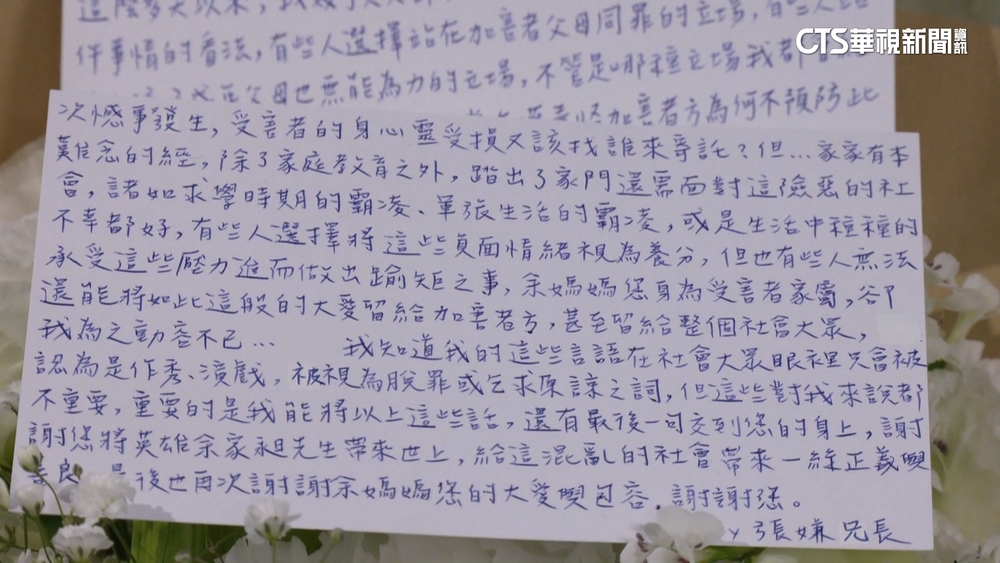 CTS華視新聞資訊
件事情的看法，有些人選擇站在加害者父母同罪的立場，有些人
父母也無能為力的立場，不管是哪種立場我都
加害者方為何不預防此
次憾事發生，受害者的身心靈受損又該找誰來寄託？但…家家有本
難念的經，除了家庭教育之外，踏出了家門還需面對這險惡的社
會，諸如求學時期的霸凌、單張生活的霸凌，或是生活中種種的
不幸都好，有些人選擇將這些負面情緒視為養分，但也有些人無法
承受這些壓力進而做出踰矩之事，余媽媽您身為受害者家屬，卻
還能將如此這般的大愛留給加害者方，甚至留給整個社會大眾，
我為之動容不已… 我知道我的這些言語在社會大眾眼裡只會被
認為是作秀、演戲，被視為脫罪或乞求原諒之詞，但這些對我來說都
不重要，重要的是我能將以上這些話，還有最後一句交到您的身上，謝
謝您將英雄余家昶先生帶來世上，給這混亂的社會帶來一絲正義與
善良 最後也再次謝謝余媽媽您的大愛與包容，謝謝您。
張嫌 兄長